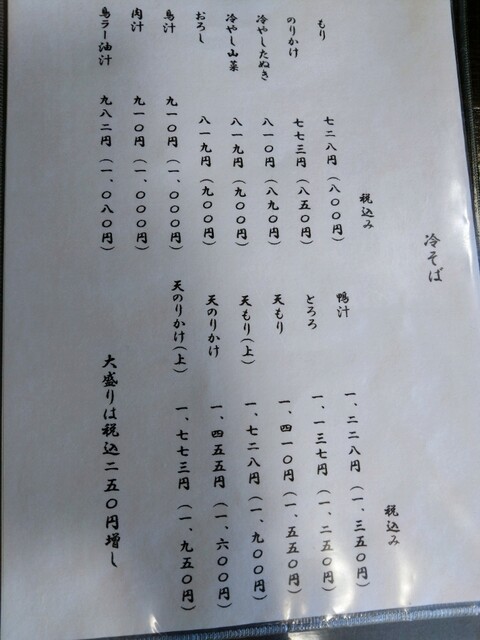 冷そば
税込み
もり 七二八円（八〇〇円）
のりかけ 七七三円（八五〇円）
冷やしたぬき 八一〇円（八九〇円）
冷やし山菜 八一九円（九〇〇円）
おろし 八一九円（九〇〇円）
鳥汁 九一〇円（一、〇〇〇円）
肉汁 九一〇円（一、〇〇〇円）
鳥ラー油汁 九八二円（一、〇八〇円）
税込み
鴨汁 一、二二八円（一、三五〇円）
とろろ 一、一三七円（一、二五〇円）
天もり 一、四一〇円（一、五五〇円）
天もり（上） 一、七二八円（一、九〇〇円）
天のりかけ 一、四五五円（一、六〇〇円）
天のりかけ（上） 一、七七三円（一、九五〇円）
大盛りは税込二五〇円増し